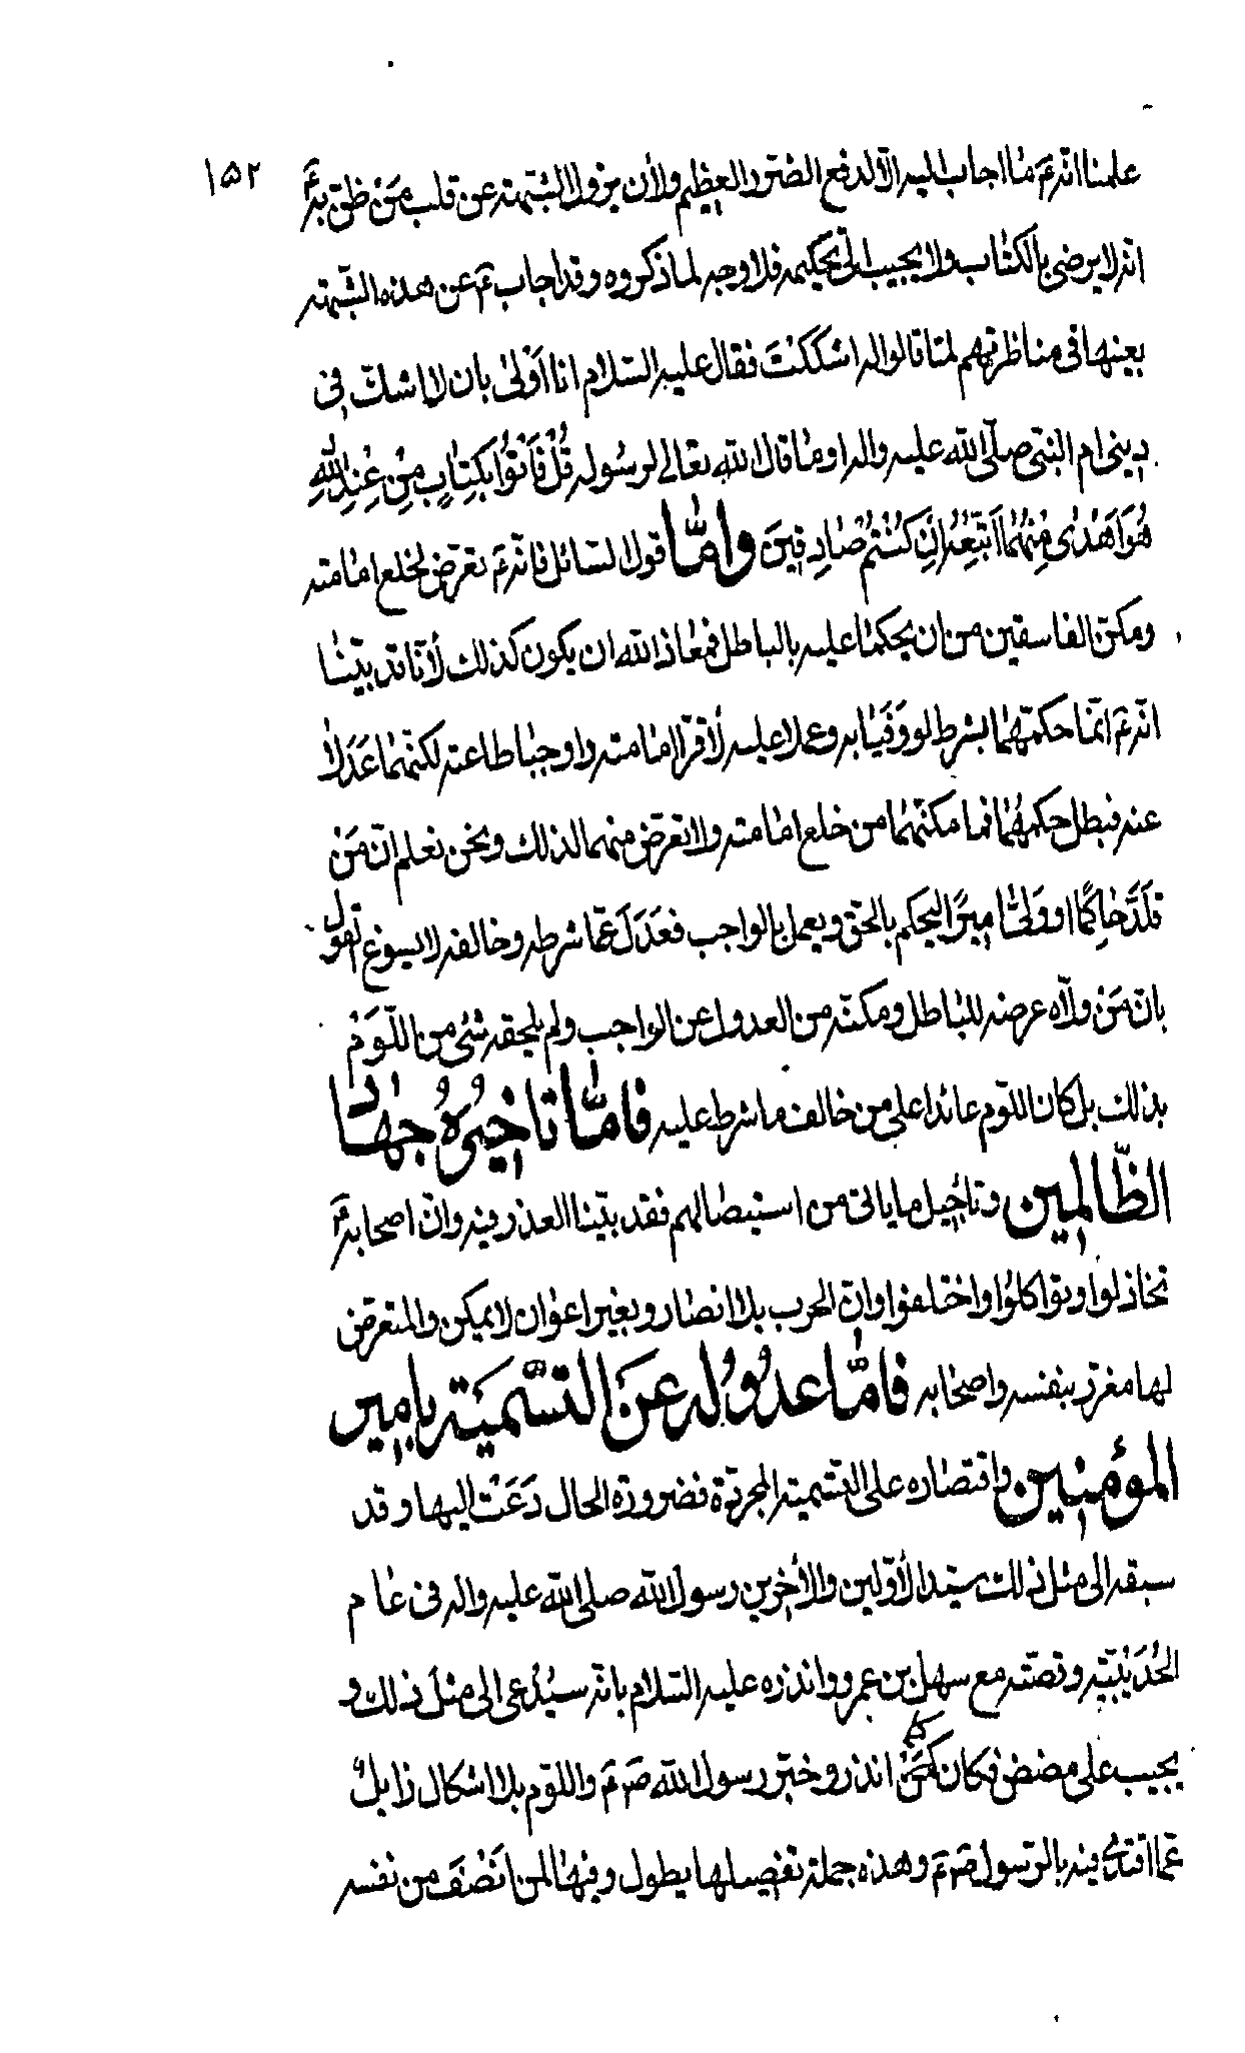 ١٥٢
علمنا انّه ع ما اجاب اليه الّا لدفع الضّرر العظيم ولأن يزول الشّبهة عن قلب مَنْ ظنّ به ع
انّه لا يرضى بالكتاب ولا يجيب الى تحكيمه فلا وجه لما ذكروه وقد اجاب ع عن هذه الشّبهة
بعينها فى مناظرتهم لمّا قالوا له اشككتَ فقال عليه السّلام انا اَوْلىٰ بان لا اشكّ فى
دينى ام النبّى صلّى الله عليه واله اوما قال الله تعالى لرسوله قُلْ فَأْتُوْا بِكِتٰابٍ مِنْ عِنْدِ اللّٰهِ
هُوَ اَهْدٰى مِنْهُمٰا اَتَّبِعْهُ اِنْ كُنْتُمْ صٰادِقِينَ وامّا قول السّائل فانّه ع تعرّض لخلع امامته
ومكّن الفاسقين من ان يحكما عليه بالباطل فمعاذ الله ان يكون كذلك لأنّا قد بيّنّا
انّه ع انّما حكّمهما بشرط لو وَفَيٰا به وعملا عليه لأقرّا امامته واوجبا طاعته لكنّهما عَدَلاٰ
عنه فبطل حكمهما فما مكّنهما من خلع امامته ولا تعرّض منهما لذلك ونحن نعلم انّ مَنْ
قَلَّدَ حٰاكِمًا او وَلىّٰ اميرًا ليحكم بالحقّ ويعمل بالواجب فعَدَلَ عمّا شرطه وخالفه لا يسوغ القول
بانّ مَنْ ولّاه عرضه للباطل ومكّنه من العدول عن الواجب ولم يلحقه شئ من اللّوَمْ
بذلك بل كان اللّوم عائدا على من خالف ما شرط عليه فامّا تاخيرُهُ جهادَ
الظّالمِين وتأجيل ما ياتى من استيصالهم فقد بيّنّا العذر فيه وانّ اصحابه ع
تخاذلوا وتواكلوا واختلفوا وانّ الحرب بلا انصار وبغير اعوان لا يمكن والمتعرّض
لها مغرّر بنفسه واصحابه فامّا عدُولُه عَن التسّميَة بامير
المؤمنين واقتصاره على التسّمية المجرّدة فضرورة الحال دَعَتْ اليها وقد
سبقه الى مثل ذلك سيّد الأوّلين والأخرين رسول الله صلى الله عليه واله فى عام
الحُدَيْبيّة وقصّته مع سهل بن عمرو وانذره عليه السّلام بانّه سيُدْعى الى مثل ذلك و
يجيب على مضض فكان كما انذر وخبّر رسول الله ص ع واللّوم بلا اشكال زايلٌ
عمّا اقتدى فيه بالرّسول ص ع وهذه جملة تفصيلها يطول وفيها لمن اَنْصَفَ من نفسه